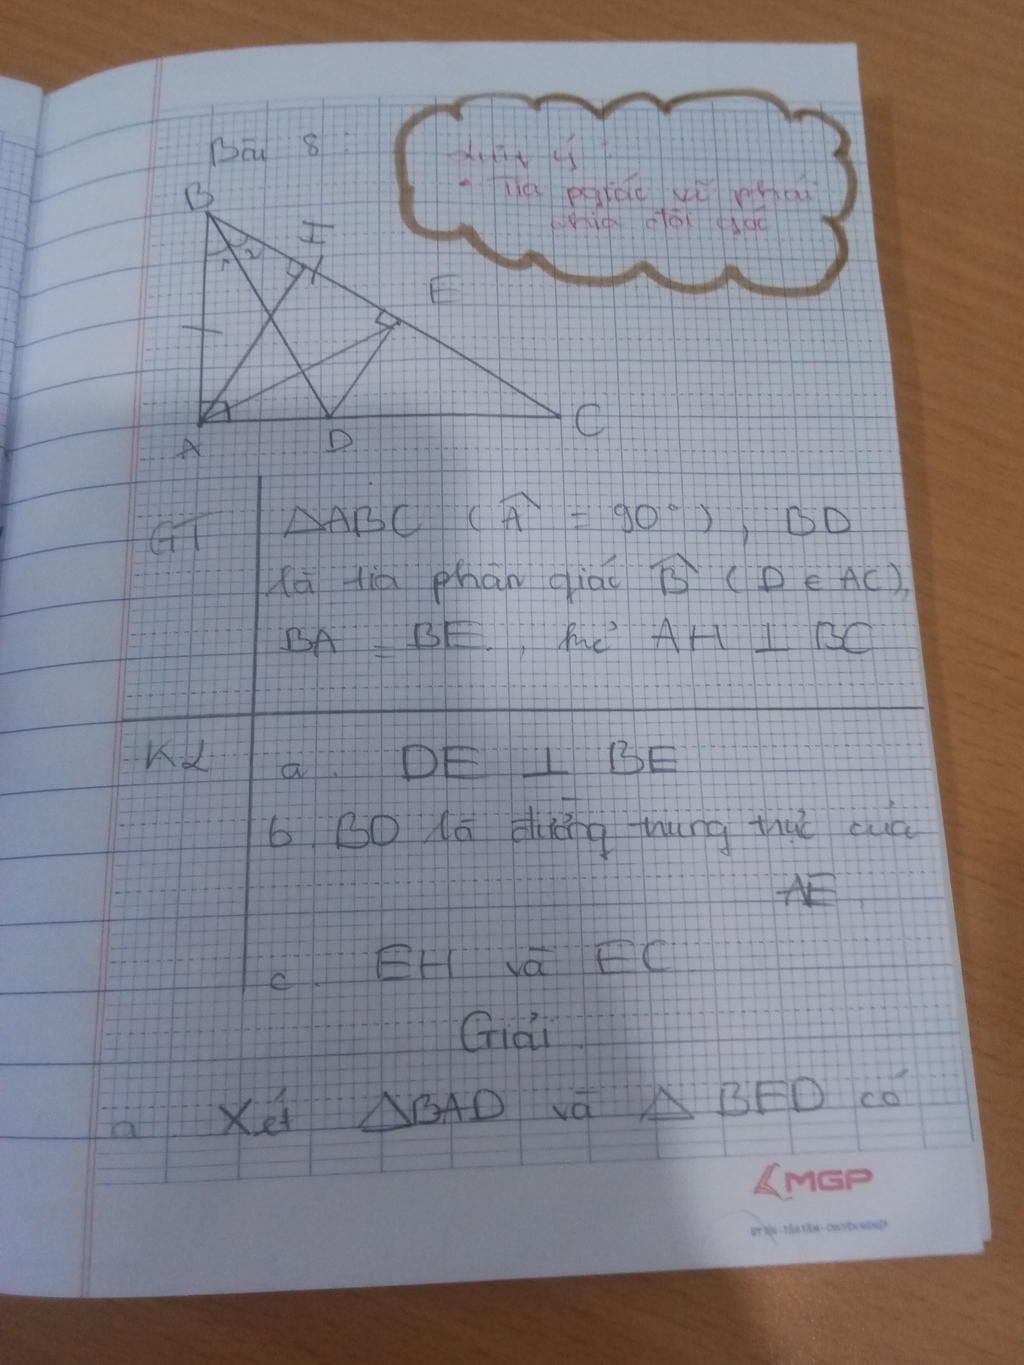 Bài 8
Lưu ý :
• Tia pgiác vẽ phải
chia đôi góc
B
H
1 2
E
A
D
C
GT
ΔABC ( Â = 90°) , BD
là tia phân giác B̂ (D ∈ AC),
BA = BE , kẻ AH ⊥ BC
KL
a. DE ⊥ BE
b. BD là đường trung trực của
AE
c. EH và EC
Giải
a. Xét ΔBAD và Δ BED có
MGP